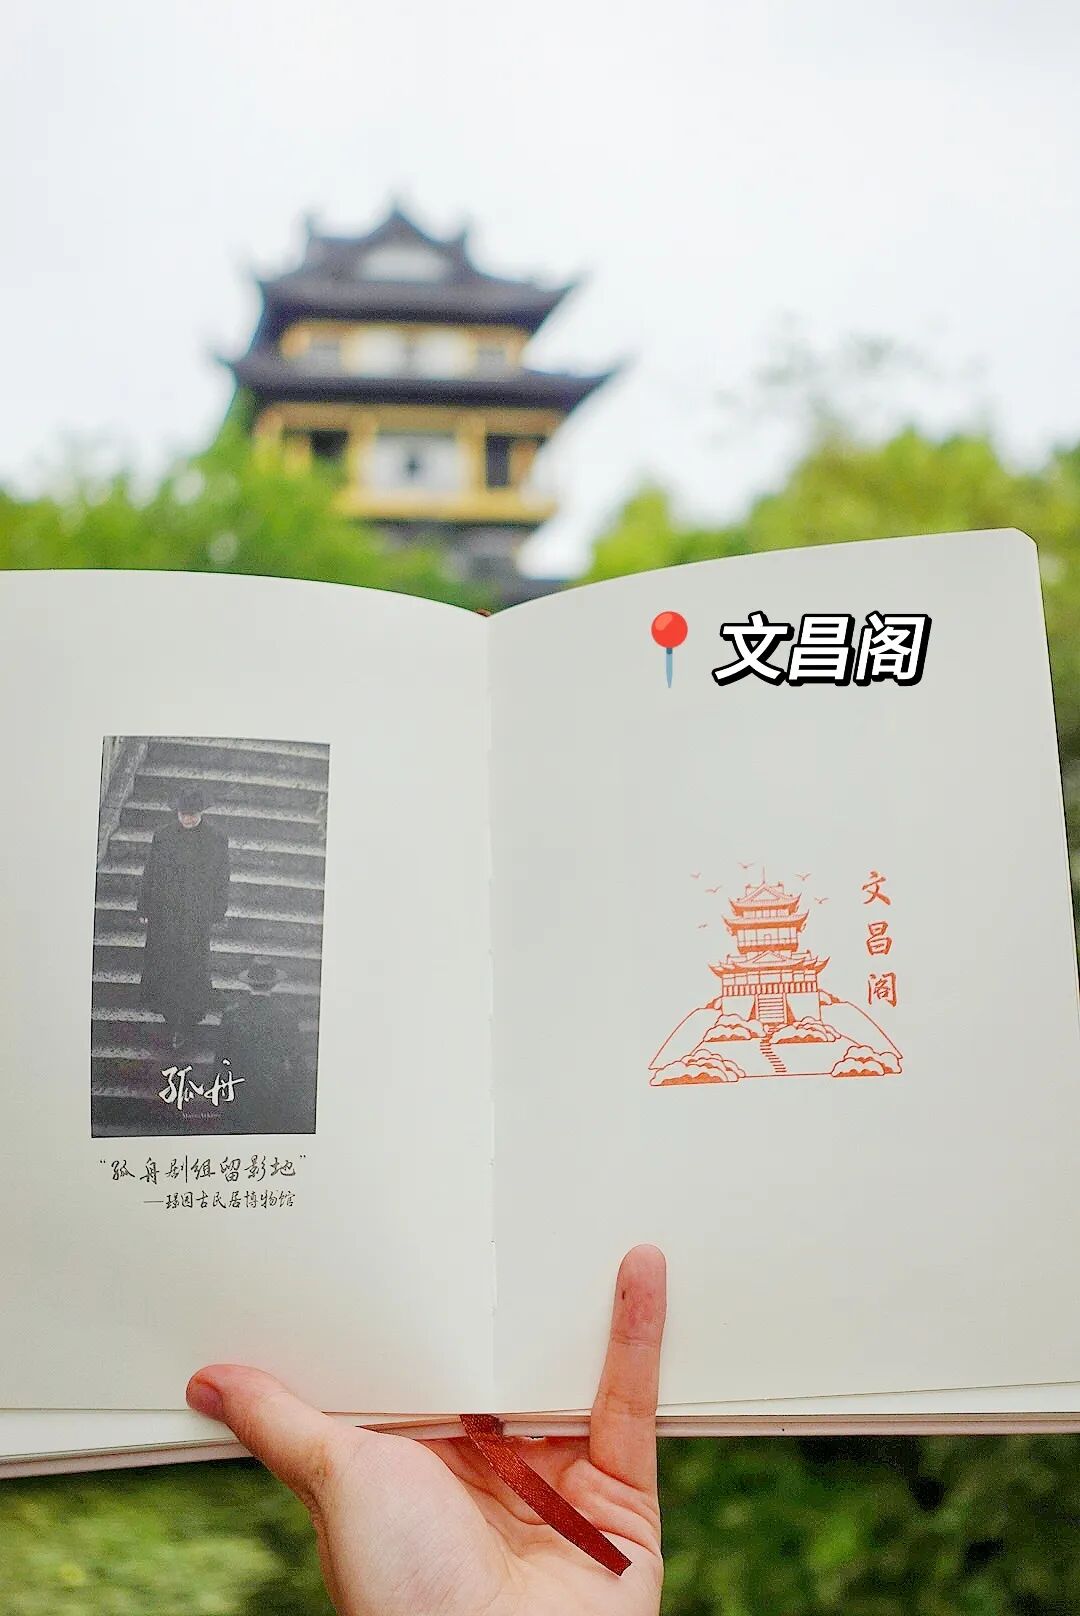 📍文昌阁
孤舟
"孤舟剧组留影地"
——璟园古民居博物馆
文昌阁